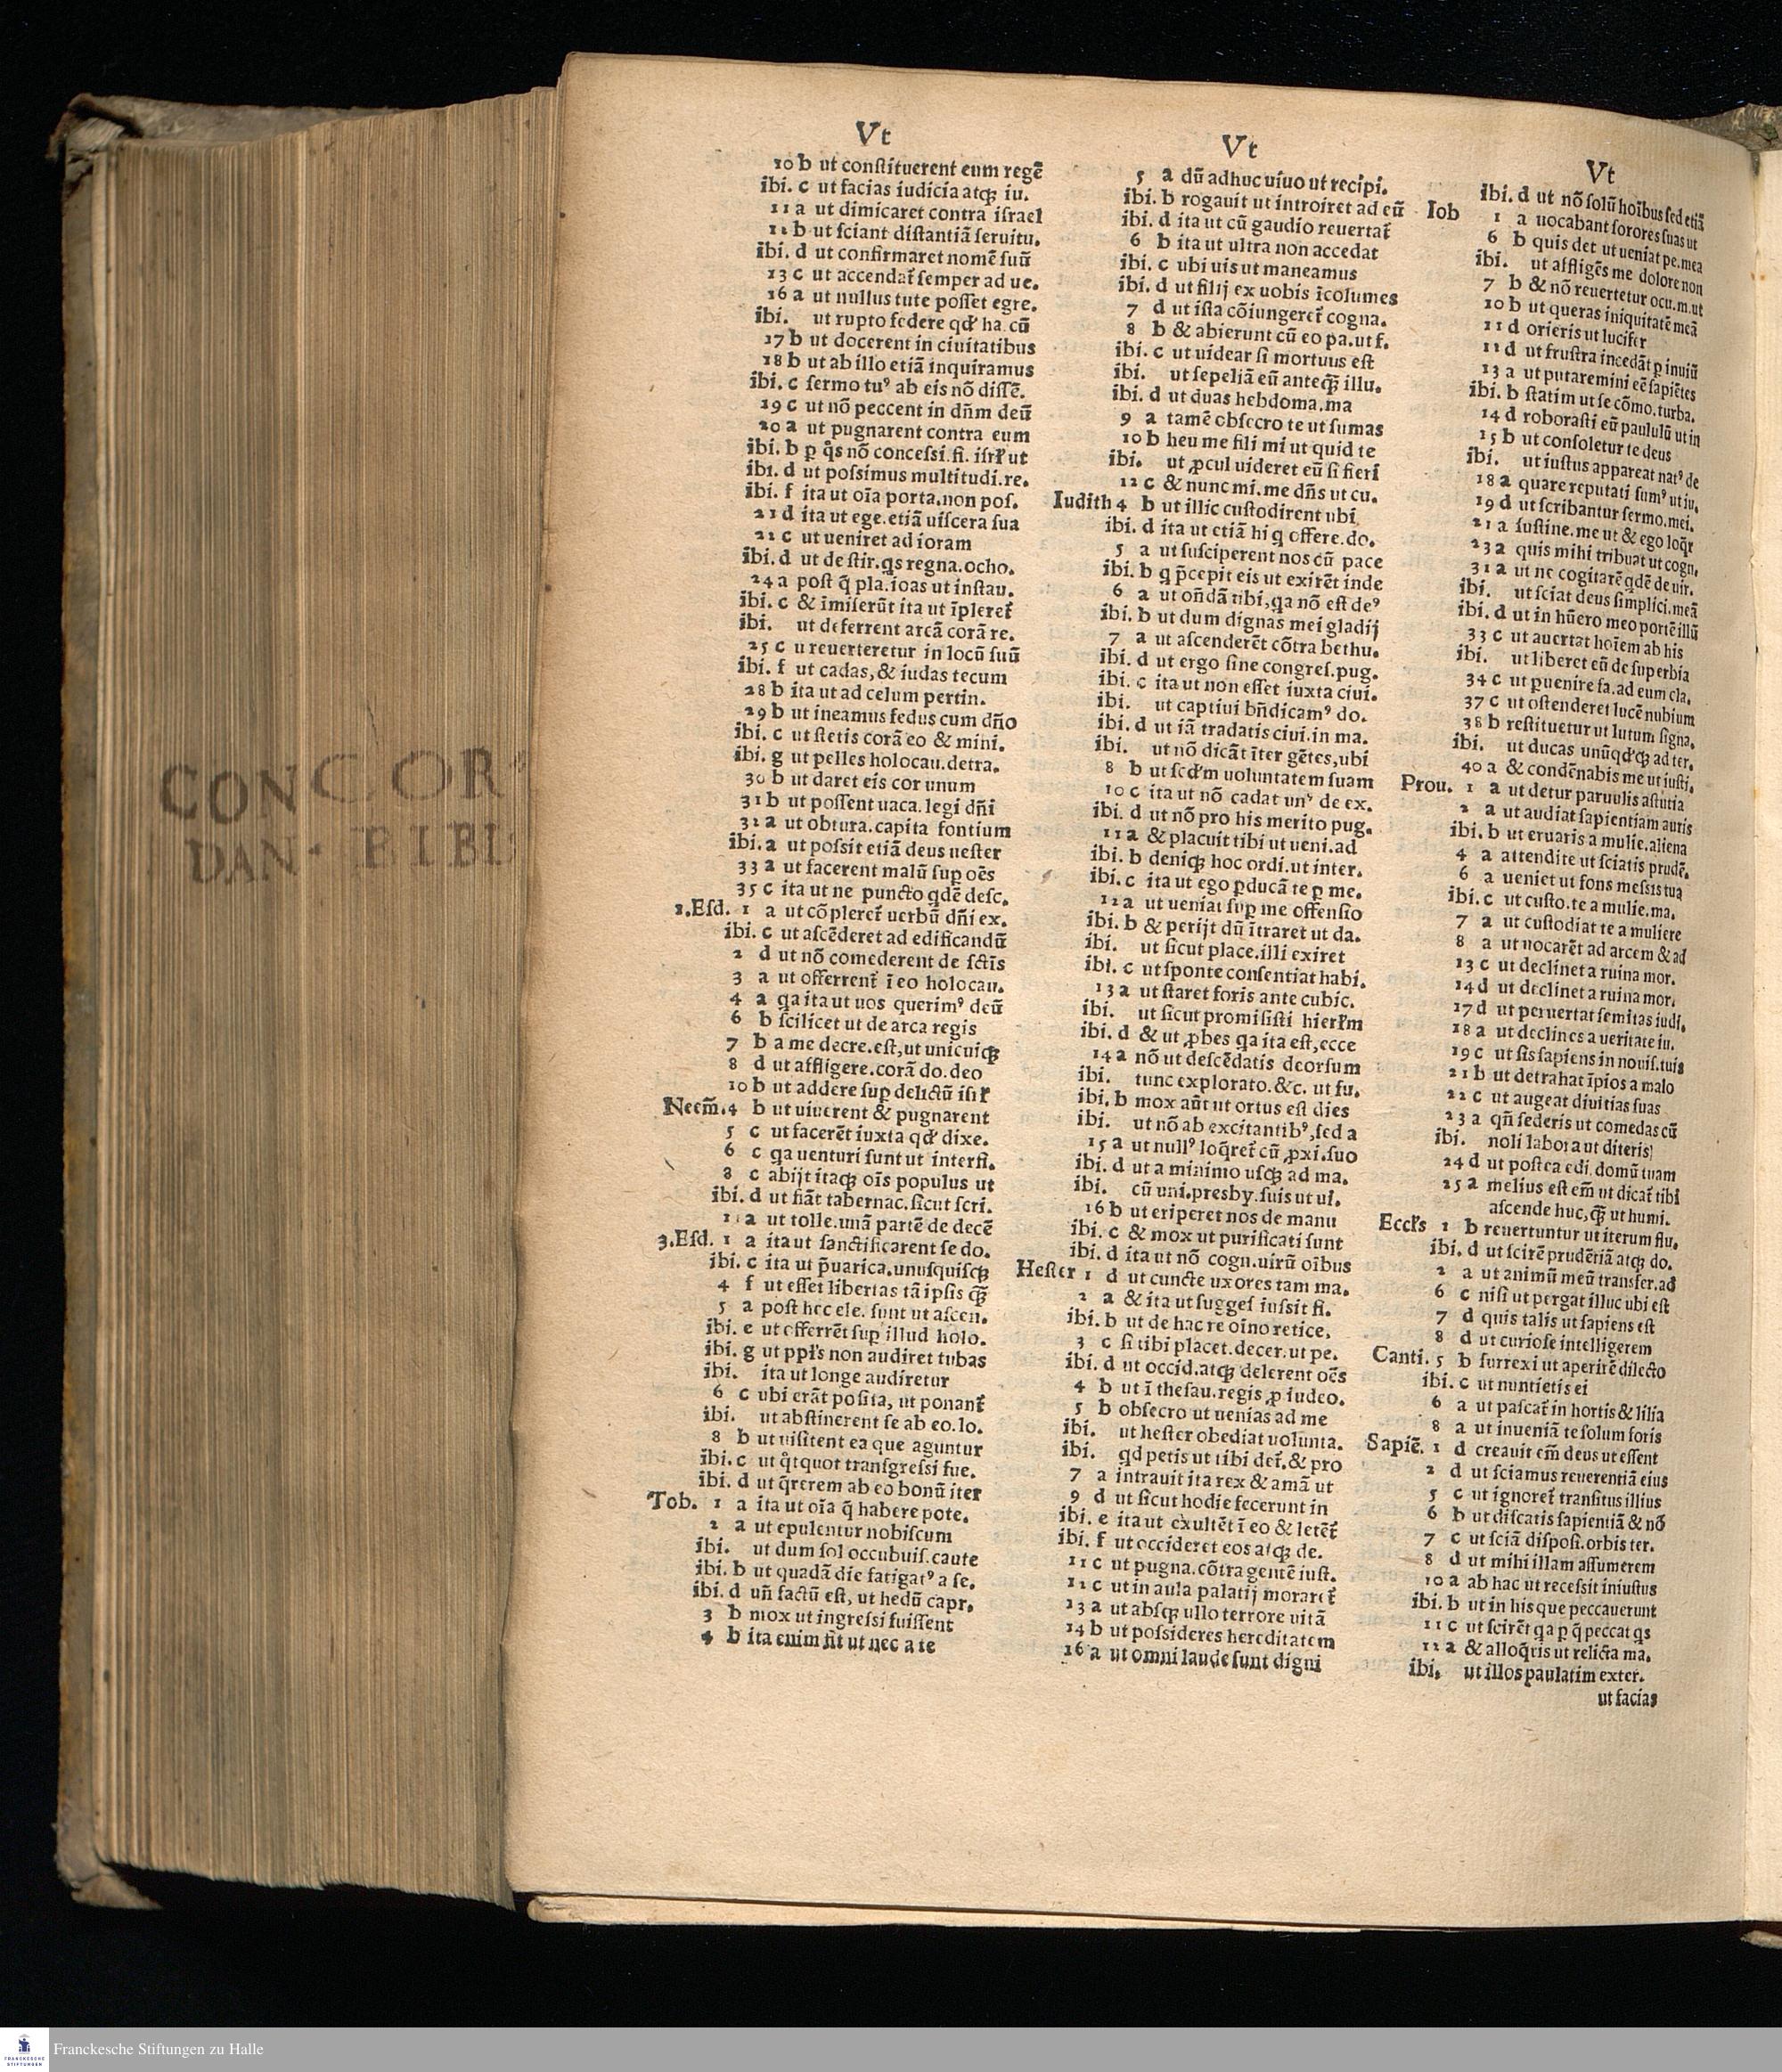 CONCOR
DAN. BIBL
Vt
10 b ut conſtituerent eum regē
ibi. c ut facias iudicia atq́; iu.
11 a ut dimicaret contra iſrael
12 b ut ſciant diſtantiā ſeruitu.
ibi. d ut confirmaret nomē ſuū
13 c ut accendat̃ ſemper ad ue.
16 a ut nullus tute poſſet egre.
ibi. ut rupto federe qđ ha. cū
17 b ut docerent in ciuitatibus
18 b ut ab illo etiā inquiramus
ibi. c ſermo tuꝰ ab eis nō diſſē.
19 c ut nō peccent in dn̄m deū
20 a ut pugnarent contra eum
ibi. b p q̊s nō conceſſi. fi. iſrł ut
ibi. d ut poſsimus multitudi.re.
ibi. f ita ut oīa porta.non poſ.
21 d ita ut ege.etiā uiſcera ſua
22 c ut ueniret ad ioram
ibi. d ut de ſtir.qs regna.ocho.
24 a poſt q̄ pla.ioas ut inſtau.
ibi. c & imiſerūt ita ut īpleret̃
ibi. ut deferrent arcā corā re.
25 c u reuerteretur in locū ſuū
ibi. f ut cadas,& iudas tecum
28 b ita ut ad celum pertin.
29 b ut ineamus fedus cum dn̄o
ibi. c ut ſtetis corā eo & mini.
ibi. g ut pelles holocau.detra.
30 b ut daret eis cor unum
31 b ut poſſent uaca. legi dn̄i
32 a ut obtura.capita fontium
ibi. a ut poſsit etiā deus ueſter
33 a ut facerent malū ſup oēs
35 c ita ut ne puncto qdē deſc.
1.Eſd. 1 a ut cōpleret̃ uerbū dn̄i ex.
ibi. c ut aſcēderet ad edificandū
2 d ut nō comederent de ſctīs
3 a ut offerrent̃ ī eo holocau.
4 a qa ita ut uos querimꝰ deū
6 b ſcilicet ut de arca regis
7 b a me decre.eſt,ut unicuiq́;
8 d ut affligere.corā do.deo
10 b ut addere ſup delictū iſrł
Neem̄.4 b ut uiuerent & pugnarent
5 c ut facerēt iuxta qđ dixe.
6 c qa uenturi ſunt ut interfi.
8 c abijt itaq́; oīs populus ut
ibi. d ut fiāt tabernac.ſicut ſcri.
11 a ut tolle.unā partē de decē
3.Eſd. 1 a ita ut ſanctificarent ſe do.
ibi. c ita ut p̄uarica.unuſquiſq́;
4 f ut eſſet libertas tā ipſis q̄;
5 a poſt hec ele. ſunt ut aſcen.
ibi. e ut offerrēt ſup illud holo.
ibi. g ut ppłs non audiret tubas
ibi. ita ut longe audiretur
6 c ubi erāt poſita, ut ponant̃
ibi. ut abſtinerent ſe ab eo.lo.
8 b ut uiſitent ea que aguntur
ibi. c ut q̊tquot tranſgreſsi fue.
ibi. d ut q̄rerem ab eo bonū iter
Tob. 1 a ita ut oīa q̄ habere pote.
2 a ut epulentur nobiſcum
ibi. ut dum ſol occubuiſ.caute
ibi. b ut quadā die fatigatꝰ a ſe.
ibi. d un̄ factū eſt, ut hedū capr.
3 b mox ut ingreſsi fuiſſent
4 b ita enim fit ut nec a te
Vt
5 a dū adhuc uiuo ut recipi.
ibi. b rogauit ut introiret ad eū
ibi. d ita ut cū gaudio reuertat̃
6 b ita ut ultra non accedat
ibi. c ubi uis ut maneamus
ibi. d ut filij ex uobis īcolumes
7 d ut iſta cōiungeret̃ cogna.
8 b & abierunt cū eo pa.ut f.
ibi. c ut uidear ſi mortuus eſt
ibi. ut ſepeliā eū anteq̄; illu.
ibi. d ut duas hebdoma.ma
9 a tamē obſecro te ut ſumas
10 b heu me fili mi ut quid te
ibi. ut ꝓcul uideret eū ſi fieri
12 c & nunc mi.me dn̄s ut cu.
Iudith 4 b ut illic cuſtodirent ubi
ibi. d ita ut etiā hi q offere.do.
5 a ut ſuſciperent nos cū pace
ibi. b q p̄cepit eis ut exirēt inde
6 a ut on̄dā tibi,qa nō eſt deꝰ
ibi. b ut dum dignas mei gladij
7 a ut aſcenderēt cōtra bethu.
ibi. d ut ergo ſine congreſ.pug.
ibi. c ita ut non eſſet iuxta ciui.
ibi. ut captiui bn̄dicamꝰ do.
ibi. d ut iā tradatis ciui.in ma.
ibi. ut nō dicāt īter gētes,ubi
8 b ut ſcđm uoluntatem ſuam
10 c ita ut nō cadat unꝰ de ex.
ibi. d ut nō pro his merito pug.
11 a & placuit tibi ut ueni.ad
ibi. b deniq́; hoc ordi.ut inter.
ibi. c ita ut ego pducā te p me.
12 a ut ueniat ſup me offenſio
ibi. b & perijt dū ītraret ut da.
ibi. ut ſicut place.illi exiret
ibi. c ut ſponte conſentiat habi.
13 a ut ſtaret foris ante cubic.
ibi. ut ſicut promiſiſti hierłm
ibi. d & ut ꝓbes qa ita eſt,ecce
14 a nō ut deſcēdatis deorſum
ibi. tunc explorato.&c. ut fu.
ibi. b mox aūt ut ortus eſt dies
ibi. ut nō ab excitantibꝰ,ſed a
15 a ut nullꝰ loq̄ret̃ cū ꝓxi.ſuo
ibi. d ut a minimo uſq́; ad ma.
ibi. cū uni.presby.ſuis ut ui.
16 b ut eriperet nos de manu
ibi. c & mox ut purificati ſunt
ibi. d ita ut nō cogn.uirū oībus
Heſter 1 d ut cuncte uxores tam ma.
2 a & ita ut ſuggeſ iuſsit fi.
ibi. b ut de hac re oīno retice.
3 c ſi tibi placet.decer.ut pe.
ibi. d ut occid.atq́; delerent oēs
4 b ut ī theſau.regis ꝓ iudeo.
5 b obſecro ut uenias ad me
ibi. ut heſter obediat uolunta.
ibi. qd petis ut tibi det̃.& pro
7 a intrauit ita rex & amā ut
9 d ut ſicut hodie fecerunt in
ibi. e ita ut exultēt ī eo & letēt̃
ibi. f ut occideret eos atq́; de.
11 c ut pugna.cōtra gentē iuſt.
12 c ut in aula palatij moraret̃
13 a ut abſq́; ullo terrore uitā
14 b ut poſsideres hereditatem
16 a ut omni laude ſunt digni
Vt
ibi. d ut nō ſolū hoībus ſed etiā
Iob 1 a uocabant ſorores ſuas ut
6 b quis det ut ueniat pe.mea
ibi. ut affligēs me dolore non
7 b & nō reuertetur ocu.m.ut
10 b ut queras iniquitatē meā
11 d orieris ut lucifer
12 d ut fruſtra incedāt p inuiū
13 a ut putaremini eē ſapiētes
ibi. b ſtatim ut ſe cōmo.turba.
14 d roboraſti eū paululū ut in
15 b ut conſoletur te deus
ibi. ut iuſtus appareat natꝰ de
18 a quare reputati ſumꝰ ut iu.
19 d ut ſcribantur ſermo.mei.
21 a ſuſtine.me ut & ego loq̄r
23 a quis mihi tribuat ut cogn.
31 a ut ne cogitarē qdē de uir.
ibi. ut ſciat deus ſimplici.meā
ibi. d ut in hūero meo portē illū
33 c ut auertat hoīem ab his
ibi. ut liberet eū de ſuperbia
34 c ut puenire fa.ad eum cla.
37 c ut oſtenderet lucē nubium
38 b reſtituetur ut lutum ſigna.
ibi. ut ducas unūqđq́; ad ter.
40 a & condēnabis me ut iuſti.
Prou. 1 a ut detur paruulis aſtutia
2 a ut audiat ſapientiam auris
ibi. b ut eruaris a mulie.aliena
4 a attendite ut ſciatis prudē.
6 a ueniet ut fons meſsis tua
ibi. c ut cuſto.te a mulie.ma.
7 a ut cuſtodiat te a muliere
8 a ut uocarēt ad arcem & ad
13 c ut declinet a ruina mor.
14 d ut declinet a ruina mor.
17 d ut peruertat ſemitas iudi.
18 a ut declines a ueritate iu.
19 c ut ſis ſapiens in nouiſ.tuis
21 b ut detrahat īpios a malo
22 c ut augeat diuitias ſuas
23 a qn̄ ſederis ut comedas cū
ibi. noli labora ut diteris
24 d ut poſtea edi.domū tuam
25 a melius eſt em̄ ut dicat̃ tibi
aſcende huc,q̄; ut humi.
Eccłs 1 b reuertuntur ut iterum flu.
ibi. d ut ſcirē prudētiā atq́; do.
2 a ut animū meū transfer.ad
6 c niſi ut pergat illuc ubi eſt
7 d quis talis ut ſapiens eſt
8 d ut curioſe intelligerem
Canti. 5 b ſurrexi ut aperirē dilecto
ibi. c ut nuntietis ei
6 a ut paſcat̃ in hortis & lilia
8 a ut inueniā te ſolum foris
Sapiē. 1 d creauit em̄ deus ut eſſent
2 d ut ſciamus reuerentiā eius
5 c ut ignoret̃ tranſitus illius
6 b ut diſcatis ſapientiā & nō
7 c ut ſciā diſpoſi.orbis ter.
8 d ut mihi illam aſſumerem
10 a ab hac ut receſsit iniuſtus
ibi. b ut in his que peccauerunt
11 c ut ſcirēt qa p q̄ peccat qs
12 a & alloq̄ris ut relicta ma.
ibi. ut illos paulatim exter.
ut facias
FRANCKESCHE
STIFTUNGEN
Franckesche Stiftungen zu Halle